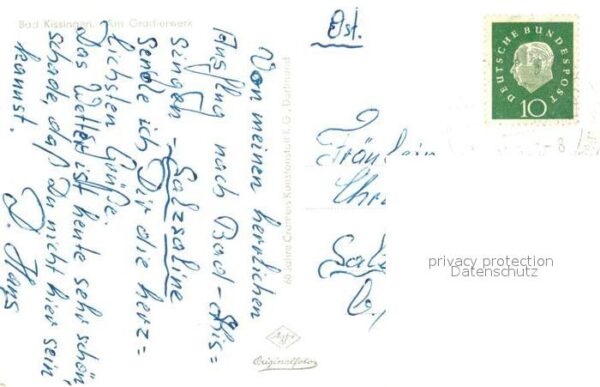 Bad Kissingen. Am Gradierwerk
Von meinen herrlichen
Ausflug nach Bad-Kis=
singen - Salzsaline
sende ich Dir die herz=
lichsten Grüße.
Das Wetter ist heute sehr schön,
schade, daß Du nicht hier sein
kannst.
D. Hans
60 Jahre Cramers Kunstanstalt K.G., Dortmund
Agfa
Originalfoto
Ost.
DEUTSCHE BUNDESPOST
10
Fräulein
Chr
Salz
privacy protection
Datenschutz